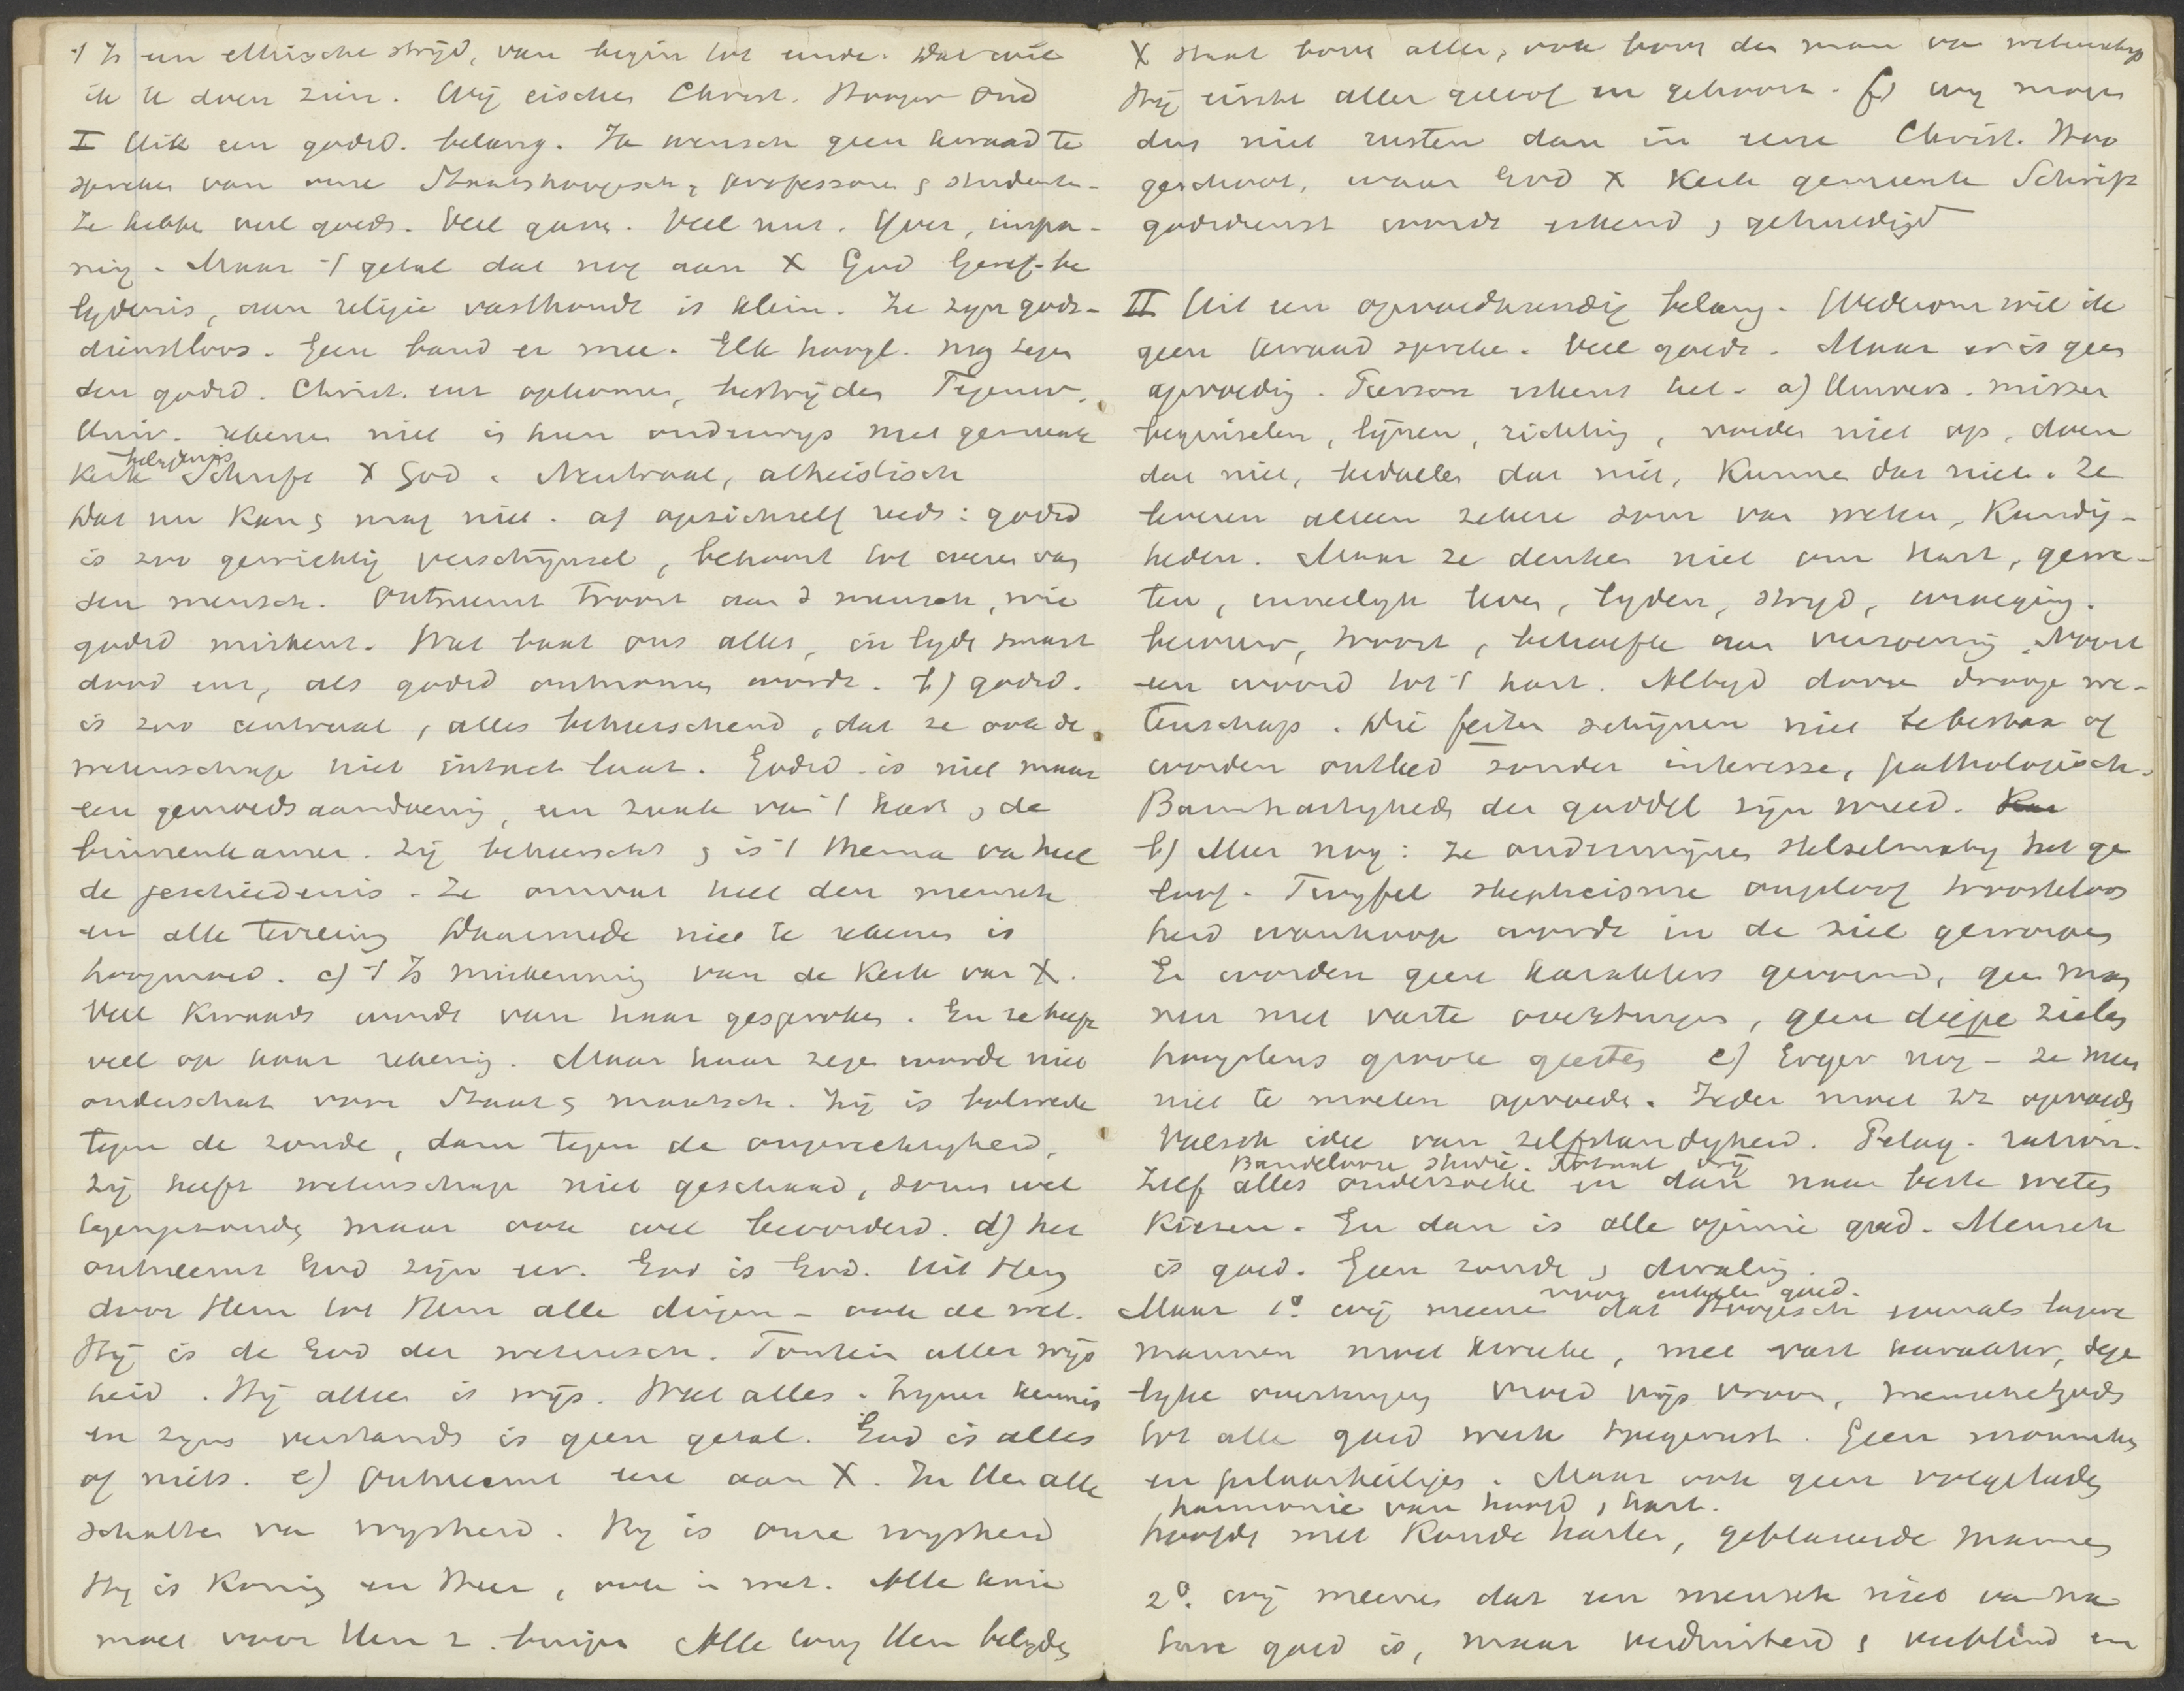 't Is een ethische strijd, van begin tot einde. Dat wil
ik U doen zien. Wij eischen Christ. Hooger Ond
I Uit een godsd. belang. Ik wensch geen kwaad te
spreken van onze Staatshoogesch, professoren & studenten.
Ze hebben veel goeds. Veel gaven. Veel nut. IJver, inspan-
ning. Maar 't getal dat nog aan X God Geref. be
lydenis, aan religie vasthoudt is klein. Ze zyn gods-
dienstloos. Geen band er mee. Elk hoogl. mag tegen
den godsd. Christ. enz opkomen, bestrijden Tegenw.
Univ. rekenen niet in hun onderwys met gemeente
belydenis
Kerk Schrift X God. Neutraal, atheistisch
Dat nu kan & mag niet. a) opzichzelf reeds: godsd
is zoo gewichtig verschijnsel, behoort tot wezen van
den mensch. Ontneemt troost aan d mensch, wie
godsd miskent. Wat baat ons alles, in lyde smart
dood enz, als godsd ontnomen wordt. b) godsd.
is zoo centraal, alles beheerschend, dat ze ook de
wetenschap niet intact laat. Godsd. is niet maar
een gemoedsaandoening, een zaak van 't hart, de
binnenkamer. Zij beheerscht & is 't thema va heel
de geschiedenis. Ze omvat heel den mensch
en elk terrein Daarmede niet te rekenen is
hoogmoed. c) 't Is miskenning van de Kerk van X.
Veel kwaads wordt van haar gesproken. En ze heeft
veel op haar rekening. Maar haar zegen worde niet
onderschat voor Staat & maatsch. Zij is bolwerk
tegen de zonde, dam tegen de ongerechtigheid.
Zij heeft wetenschap niet geschaad, soms wel
tegengehouden maar ook wel bevorderd. d) het
ontneemt God zijn eer. God is God. Uit Hem
door Hem tot Hem alle dingen - ook de wet.
Hij is de God der wetensch. Fontein aller wijs
heid. Hij alleen is wijs. Weet alles. Zyner kennis
en zyns verstands is geen getal. God is alles
of niets. e) Ontneemt eere aan X. In Hem alle
schatten van wysheid. Hy is onze wysheid
Hy is Koning en Heer, ook in wet. Alle knie
moet voor Hem z. buigen Alle tong Hem belyden
X staat boven allen, ook boven den man van wetenschap
Hij eischt aller geloof en gehoorz. f) wij mogen
dus niet rusten dan in eene Christ. Hoo
geschool, waar God X Kerk gemeente Schrift
godsdienst wordt erkend & gehuldigd
II Uit een opvoedkundig belang. Wederom wil ik
geen kwaad spreken. Veel goeds. Maar er is geen
opvoeding. Pierson erkent het. a) Univers. missen
beginselen, lijnen, richting, voeden niet op, doen
dat niet, bedoelen dat niet, kunnen dat niet. Ze
leveren alleen zekere som van weten, kundig-
heden. Maar ze denken niet om hart, gewe-
ten, innerlijk leven, lyden, stryd, overweging,
berouw, troost, behoefte aan verzoening. Nooit
een woord tot 't hart. Altyd dorre droge we-
tenschap. Die feiten schijnen niet te bestaan of
worden ontleed zonder interesse, pathologisch.
Barmhartigheden der goddel zijn wreed.
b) Meer nog: ze ondermijnen stelselmatig het ge
loof. Twyfel skepticisme ongeloof troosteloos
heid wanhoop wordt in de ziel geworpen
Er worden geen karakters gevormd, geen man
nen met vaste overtuigen, geen diepe zielen
hoogstens groote geesten c) Erger nog - ze mee
niet te moeten opvoeden. Ieder moet zz opvoeden
Valsch idee van zelfstandigheid. Pelag. ration.
Bandelooze studie. Totaal vrij
Zelf alles onderzoeke en dan naar beste weten
kiezen. En dan is alle opinie goed. Mensch
is goed. Geen zonde & dwaling.
voor enkele goed.
Maar 1º. wij meene dat Hoogesch evenals lagere
mannen moet kweeke, met vast karakter, dege
lyke overtuigingen vroed wijs vroom, menschen Gods
tot alle goed werk toegerust. Geen
en pilaarheiligen. Maar ook geen volgeladen
harmonie van hoofd & hart.
hoofde met koude harten, geblaseerde mannen
2º. wij meenen dat een mensch niet van na
ture goed is, maar verduisterd & verblind en